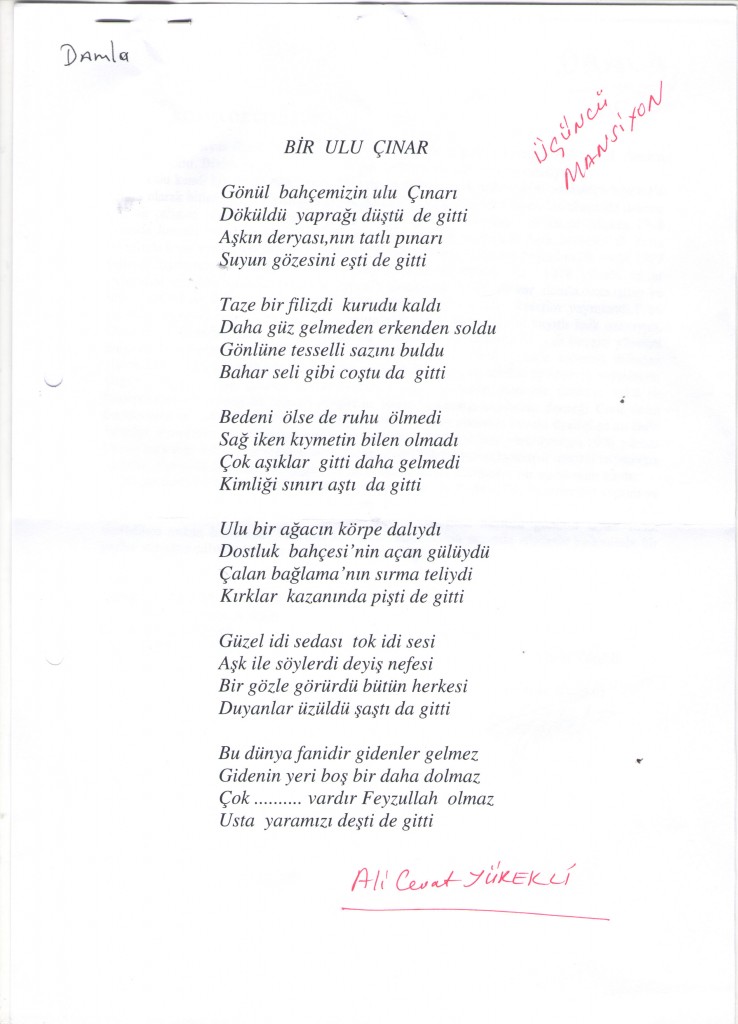 Damla
ÜÇÜNCÜ
MANSİYON
BİR ULU ÇINAR
Gönül bahçemizin ulu Çınarı
Döküldü yaprağı düştü de gitti
Aşkın deryası,nın tatlı pınarı
Suyun gözesini eşti de gitti
Taze bir filizdi kurudu kaldı
Daha güz gelmeden erkenden soldu
Gönlüne tesselli sazını buldu
Bahar seli gibi coştu da gitti
Bedeni ölse de ruhu ölmedi
Sağ iken kıymetin bilen olmadı
Çok aşıklar gitti daha gelmedi
Kimliği sınırı aştı da gitti
Ulu bir ağacın körpe dalıydı
Dostluk bahçesi'nin açan gülüydü
Çalan bağlama'nın sırma teliydi
Kırklar kazanında pişti de gitti
Güzel idi sedası tok idi sesi
Aşk ile söylerdi deyiş nefesi
Bir gözle görürdü bütün herkesi
Duyanlar üzüldü şaştı da gitti
Bu dünya fanidir gidenler gelmez
Gidenin yeri boş bir daha dolmaz
Çok .......... vardır Feyzullah olmaz
Usta yaramızı deşti de gitti
Ali Cevat YÜREKLİ